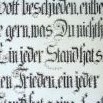 Gott beschieden, entbe
gern, was Du nicht
in jeder Stand hat s
en Frieden, ein jeder